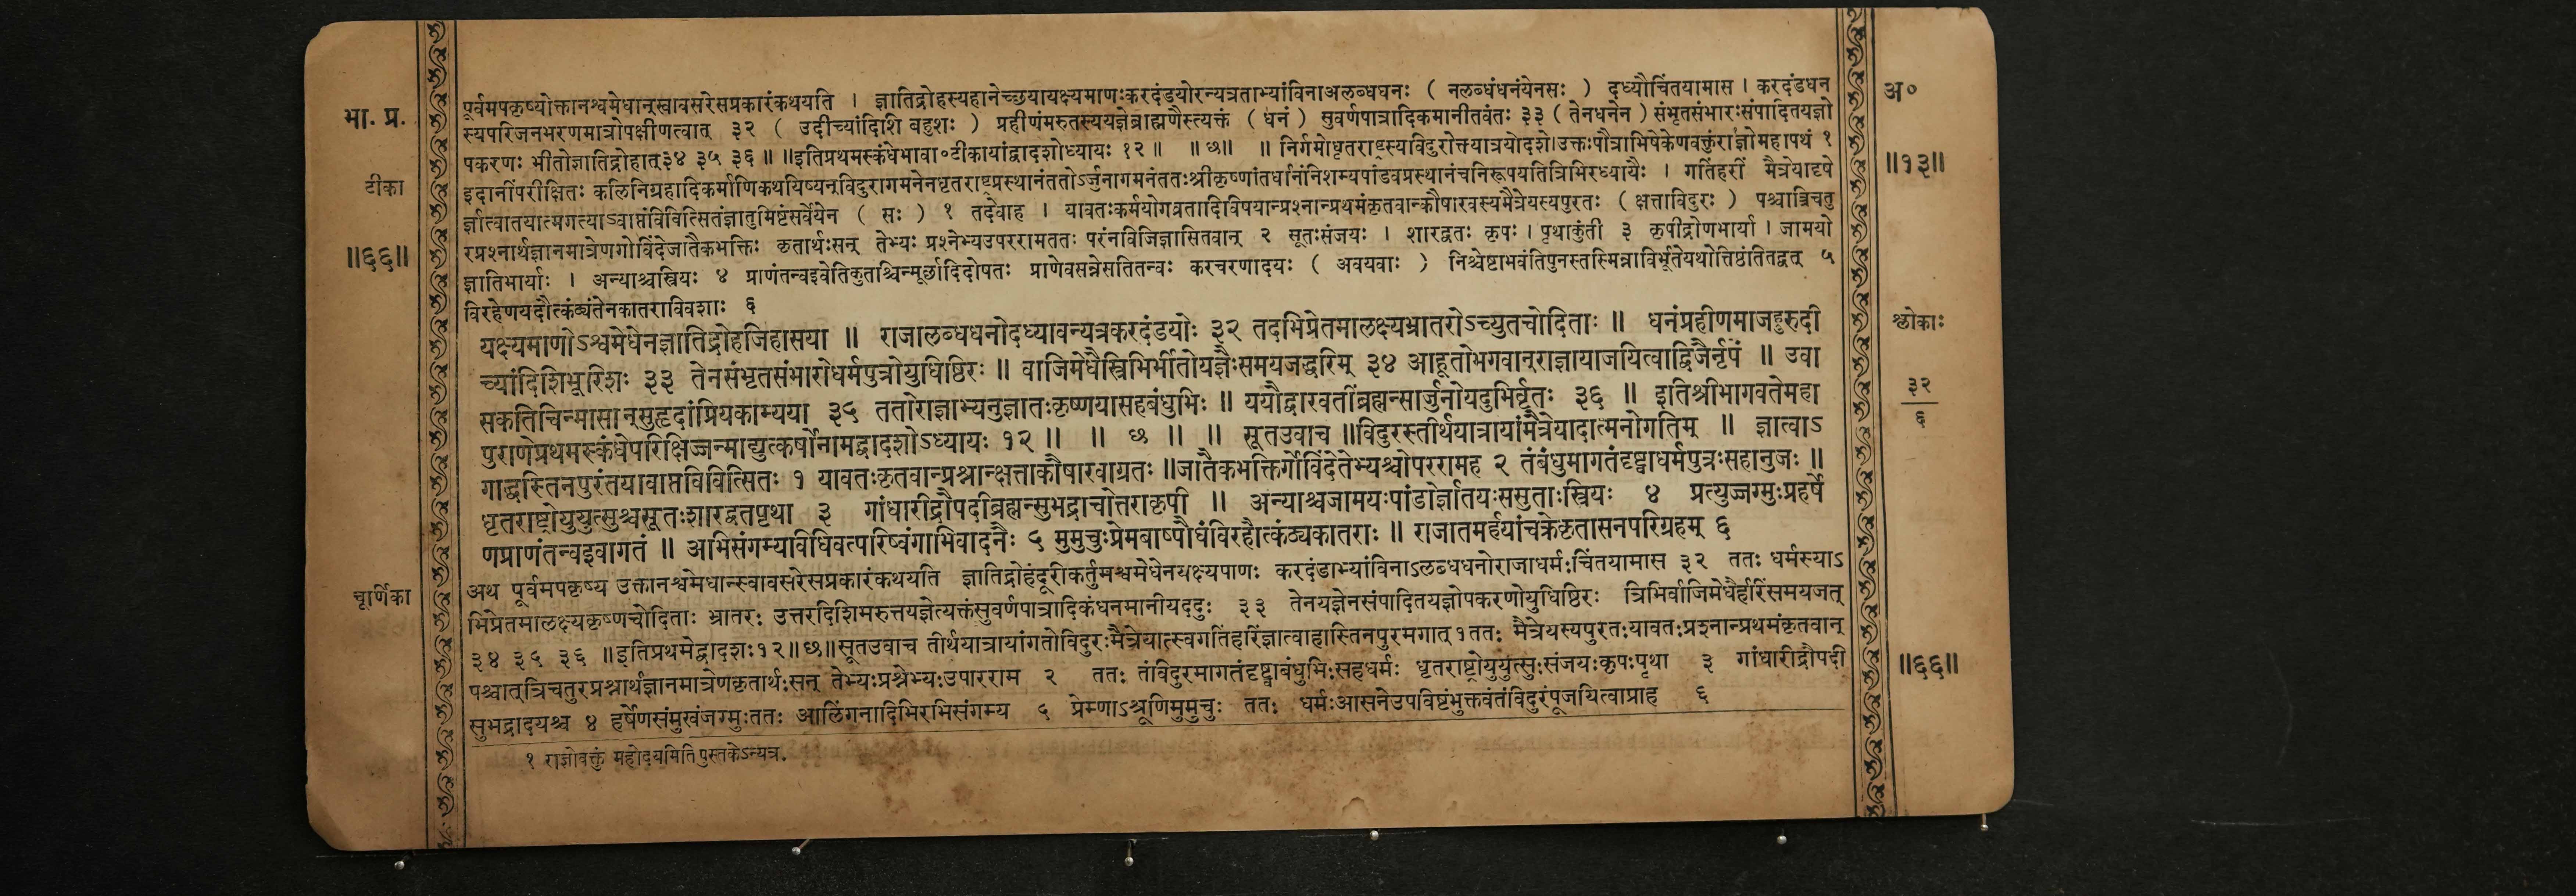 भा. प्र.
टीका
॥६६॥
चूर्णिका
पूर्वमपकृष्योक्तानश्वमेधान्स्वावसरेसप्रकारंकथयति । ज्ञातिद्रोहस्यहानेच्छयायक्ष्यमाणःकरदंडयोरन्यत्रताभ्यांविनाअलब्धधनः ( नलब्धंधनंयेनसः ) दध्यौचिंतयामास । करदंडधन
स्यपरिजनभरणमात्रोपक्षीणत्वात् ३२ ( उदीच्यांदिशि बहुशः ) प्रहीणंमरुतस्ययज्ञेब्राह्मणैस्त्यक्तं ( धनं ) सुवर्णपात्रादिकमानीतवंतः ३३ ( तेनधनेन ) संभृतसंभारःसंपादितयज्ञो
पकरणः भीतोज्ञातिद्रोहात्३४ ३५ ३६ ॥ ॥इतिप्रथमस्कंधेभावा०टीकायांद्वादशोध्यायः १२ ॥ ॥ छ॥ ॥ निर्गमोधृतराष्ट्रस्यविदुरोक्तयात्रयोदशे।उक्तःपौत्राभिषेकेणवक्तुंराज्ञोमहापथं १
इदानींपरीक्षितः कलिनिग्रहादिकर्माणिकथयिष्यन्विदुरागमनेनधृतराष्ट्रप्रस्थानंततोऽर्जुनागमनंततःश्रीकृष्णांतर्धानंनिशम्यपांडवप्रस्थानंचनिरूपयतित्रिभिरध्यायैः । गतिंहरीं मैत्रेयादृषे
र्ज्ञात्वातयात्मगत्याऽवाप्तंविवित्सितंज्ञातुमिष्टंसर्वेयेन ( सः ) १ तदेवाह । यावतःकर्मयोगव्रतादिविषयान्प्रश्नान्प्रथमंकृतवान्कौषारवस्यमैत्रेयस्यपुरतः ( क्षत्ताविदुरः ) पश्चात्रिचतु
रप्रश्नार्थज्ञानमात्रेणगोविंदेजातैकभक्तिः कृतार्थःसन् तेभ्यः प्रश्नेभ्यउपररामततः परंनविजिज्ञासितवान् २ सूतःसंजयः । शारद्वतः कृपः । पृथाकुंती ३ कृपीद्रोणभार्या । जामयो
ज्ञातिभार्याः । अन्याश्चस्त्रियः ४ प्राणंतन्वइवेतिकुतश्चिन्मूर्छादिदोषतः प्राणेवसन्नेसतितन्वः करचरणादयः ( अवयवाः ) निश्चेष्टाभवंतिपुनस्तस्मिन्नाविर्भूतेयथोत्तिष्ठंतितद्वत् ५
विरहेणयदौत्कंठ्यंतेनकातराविवशाः ६
यक्ष्यमाणोऽश्वमेधेनज्ञातिद्रोहजिहासया ॥ राजालब्धधनोदध्यावन्यत्रकरदंडयोः ३२ तदभिप्रेतमालक्ष्यभ्रातरोऽच्युतचोदिताः ॥ धनंप्रहीणमाजह्रुरुदी
च्यांदिशिभूरिशः ३३ तेनसंभृतसंभारोधर्मपुत्रोयुधिष्ठिरः ॥ वाजिमेधैस्त्रिभिर्भीतोयज्ञैःसमयजद्धरिम् ३४ आहूतोभगवान्राज्ञायाजयित्वाद्विजैर्नृपं ॥ उवा
सकतिचिन्मासान्सुहृदांप्रियकाम्यया ३५ ततोराज्ञाभ्यनुज्ञातःकृष्णयासहबंधुभिः ॥ ययौद्वारवतींब्रह्मन्सार्जुनोयदुभिर्वृतः ३६ ॥ इतिश्रीभागवतेमहा
पुराणेप्रथमस्कंधेपरिक्षिज्जन्माद्युत्कर्षोनामद्वादशोऽध्यायः १२ ॥ ॥ छ ॥ ॥ सूतउवाच ॥विदुरस्तीर्थयात्रायांमैत्रेयादात्मनोगतिम् ॥ ज्ञात्वाऽ
गाद्धस्तिनपुरंतयावाप्तविवित्सितः १ यावतःकृतवान्प्रश्नान्क्षत्ताकौषारवाग्रतः ॥जातैकभक्तिर्गोविंदेतेभ्यश्चोपररामह २ तंबंधुमागतंदृष्ट्वाधर्मपुत्रःसहानुजः ॥
धृतराष्ट्रोयुयुत्सुश्चसूतःशारद्वतपृथा ३ गांधारीद्रौपदीब्रह्मन्सुभद्राचोत्तराकृपी ॥ अन्याश्चजामयःपांडोर्ज्ञातयःससुताःस्त्रियः ४ प्रत्युज्जग्मुःप्रहर्षे
णप्राणंतन्वइवागतं ॥ अभिसंगम्यविधिवत्परिष्वंगाभिवादनैः ५ मुमुचुःप्रेमबाष्पौघंविरहौत्कंठ्यकातराः ॥ राजातमर्हयांचक्रेकृतासनपरिग्रहम् ६
अथ पूर्वमपकृष्य उक्तानश्वमेधान्स्वावसरेसप्रकारंकथयति ज्ञातिद्रोहंदूरीकर्तुमश्वमेधेनयक्ष्यपाणः करदंडाभ्यांविनाऽलब्धधनोराजाधर्मःचिंतयामास ३२ ततः धर्मस्याऽ
भिप्रेतमालक्ष्यकृष्णचोदिताः भ्रातरः उत्तरदिशिमरुत्तयज्ञेत्यक्तंसुवर्णपात्रादिकंधनमानीयददुः ३३ तेनयज्ञेनसंपादितयज्ञोपकरणोयुधिष्ठिरः त्रिभिर्वाजिमेधैर्हरिंसमयजत्
३४ ३५ ३६ ॥इतिप्रथमेद्वादशः१२॥छ॥सूतउवाच तीर्थयात्रायांगतोविदुरःमैत्रेयात्स्वगतिंहरिंज्ञात्वाहास्तिनपुरमगात् १ततः मैत्रेयस्यपुरतःयावतःप्रश्नान्प्रथमंकृतवान्
पश्चात्त्रिचतुरप्रश्नार्थंज्ञानमात्रेणकृतार्थःसन् तेभ्यःप्रश्नेभ्यःउपारराम २ ततः तंविदुरमागतंदृष्ट्वाबंधुभिःसहधर्मः धृतराष्ट्रोयुयुत्सुःसंजयःकृपःपृथा ३ गांधारीद्रौपदी
सुभद्रादयश्च ४ हर्षेणसंमुखंजग्मुःततः आलिंगनादिभिरभिसंगम्य ५ प्रेम्णाऽश्रूणिमुमुचुः ततः धर्मःआसनेउपविष्टंभुक्तवंतंविदुरंपूजयित्वाप्राह ६
१ राज्ञोवक्तुं महोदयमिति पुस्तकेऽन्यत्र.
अ०
॥१३॥
श्लोकाः
३२
६
॥६६॥